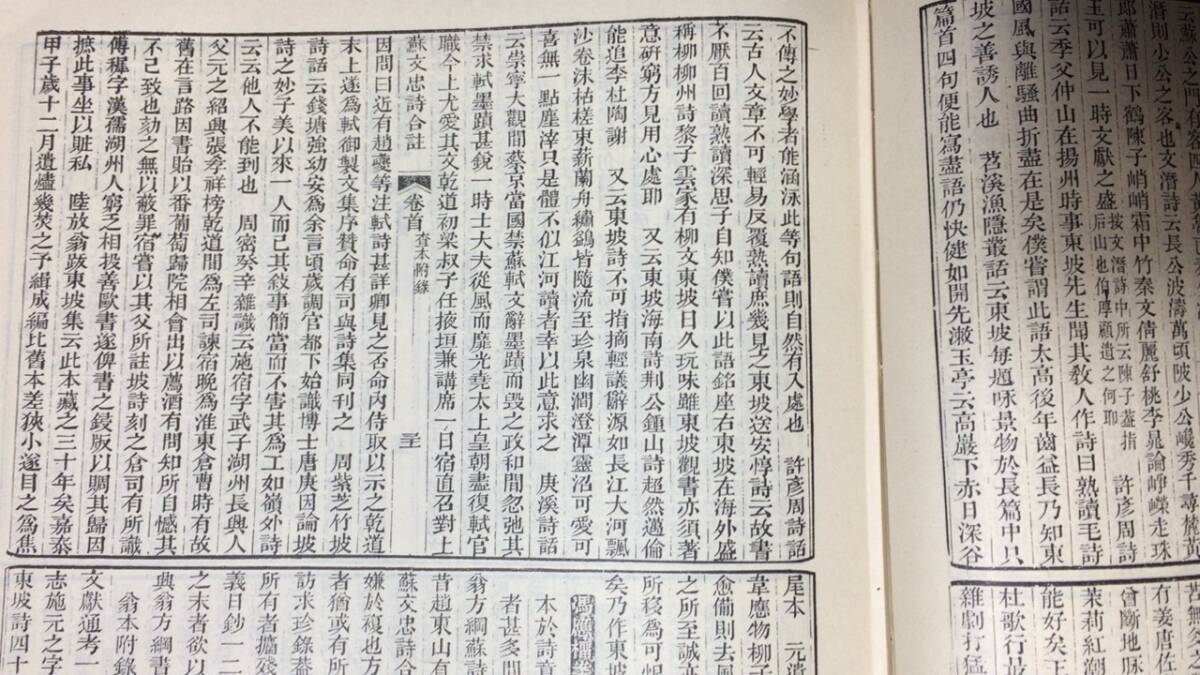 篇首四句便能寫盡語仍快健如開先漱玉亭云高巖下赤日深谷
坡之善誘人也　苕溪漁隱叢話云東坡每題咏景物於長篇中只
國風與離騷曲折盡在是矣僕嘗謂此語太高後年齒益長乃知東
話云季父仲山在揚州時事東坡先生聞其教人作詩曰熟讀毛詩
王可以見一時文獻之盛
許彥周詩
郎蕭蕭日下鶴陳子峭峭霜中竹秦文倩麗舒桃李晁論崢嶸走珠
潛則少公之客也文潛詩云長公波濤萬頃陂少公巉秀千尋麓黃
不傳之妙學者能涵泳此等句語則自然有入處也　許彥周詩話
云古人文章不可輕易反覆熟讀庶幾見之東坡送安惇詩云故書
不厭百回讀熟讀深思子自知僕嘗以此語銘座右東坡在海外盛
稱柳柳州詩黎子雲家有柳文東坡日久玩味雖東坡觀書亦須著
意研窮方見用心處耶　又云東坡海南詩荆公鍾山詩超然邁倫
能追李杜陶謝　又云東坡詩不可指摘輕議辭源如長江大河飄
沙卷沫枯槎束薪蘭舟繡鷁皆隨流至珍泉幽澗澄潭靈沼可愛可
喜無一點塵滓只是體不似江河讀者幸以此意求之　庚溪詩話
云崇寧大觀間蔡京當國禁蘇軾文辭墨蹟而毀之政和間忽弛其
禁求軾墨蹟甚銳一時士大夫從風而靡光堯太上皇朝盡復軾官
職今上尤愛其文乾道初梁叔子任掖垣兼講席一日宿直召對上
蘇文忠詩合註　卷首　查本附錄　三
因問曰近有趙夔等注軾詩甚詳卿見之否命內侍取以示之乾道
末上遂爲軾御製文集序贊命有司與詩集同刊之　周紫芝竹坡
詩話云錢塘强幼安爲余言頃歲調官都下始識博士唐庚因論坡
詩之妙子美以來一人而已其敘事簡當而不害其爲工如嶺外詩
云云他人不能到也　周密癸辛雜識云施宿字武子湖州長興人
父元之紹興張孝祥榜乾道間爲左司諫宿晚爲淮東倉曹時有故
舊在言路因書貽以番葡萄歸院相會出以薦酒有問知所自憾其
不己致也劾之無以蔽罪宿嘗以其父所註坡詩刻之倉司有所識
傅穉字漢孺湖州人窮乏相投善歐書遂俾書之鋟版以賙其歸因
摭此事坐以贓私　陸放翁跋東坡集云此本藏之三十年矣嘉泰
甲子歲十二月遺燼幾焚之予緝成編比舊本差狹小遂目之爲焦
雜劇打猛
杜歌行苦
能好矣王
茉莉紅潮
曾斷地脉
有姜唐佐
尾本　元遺
韋應物柳子
愈僃則去風
之所至誠亦
所移爲可
矣乃作東坡
本於詩意
者甚多間
翁方綱蘇詩
昔趙東山有
蘇文忠詩合
嫌於複也方
者猶或有所
訪求珍錄葢
所有者攟殘
義日鈔一二
之末者欲以
興翁方綱書
翁本附錄
文獻通考一
志施元之字
東坡詩四十